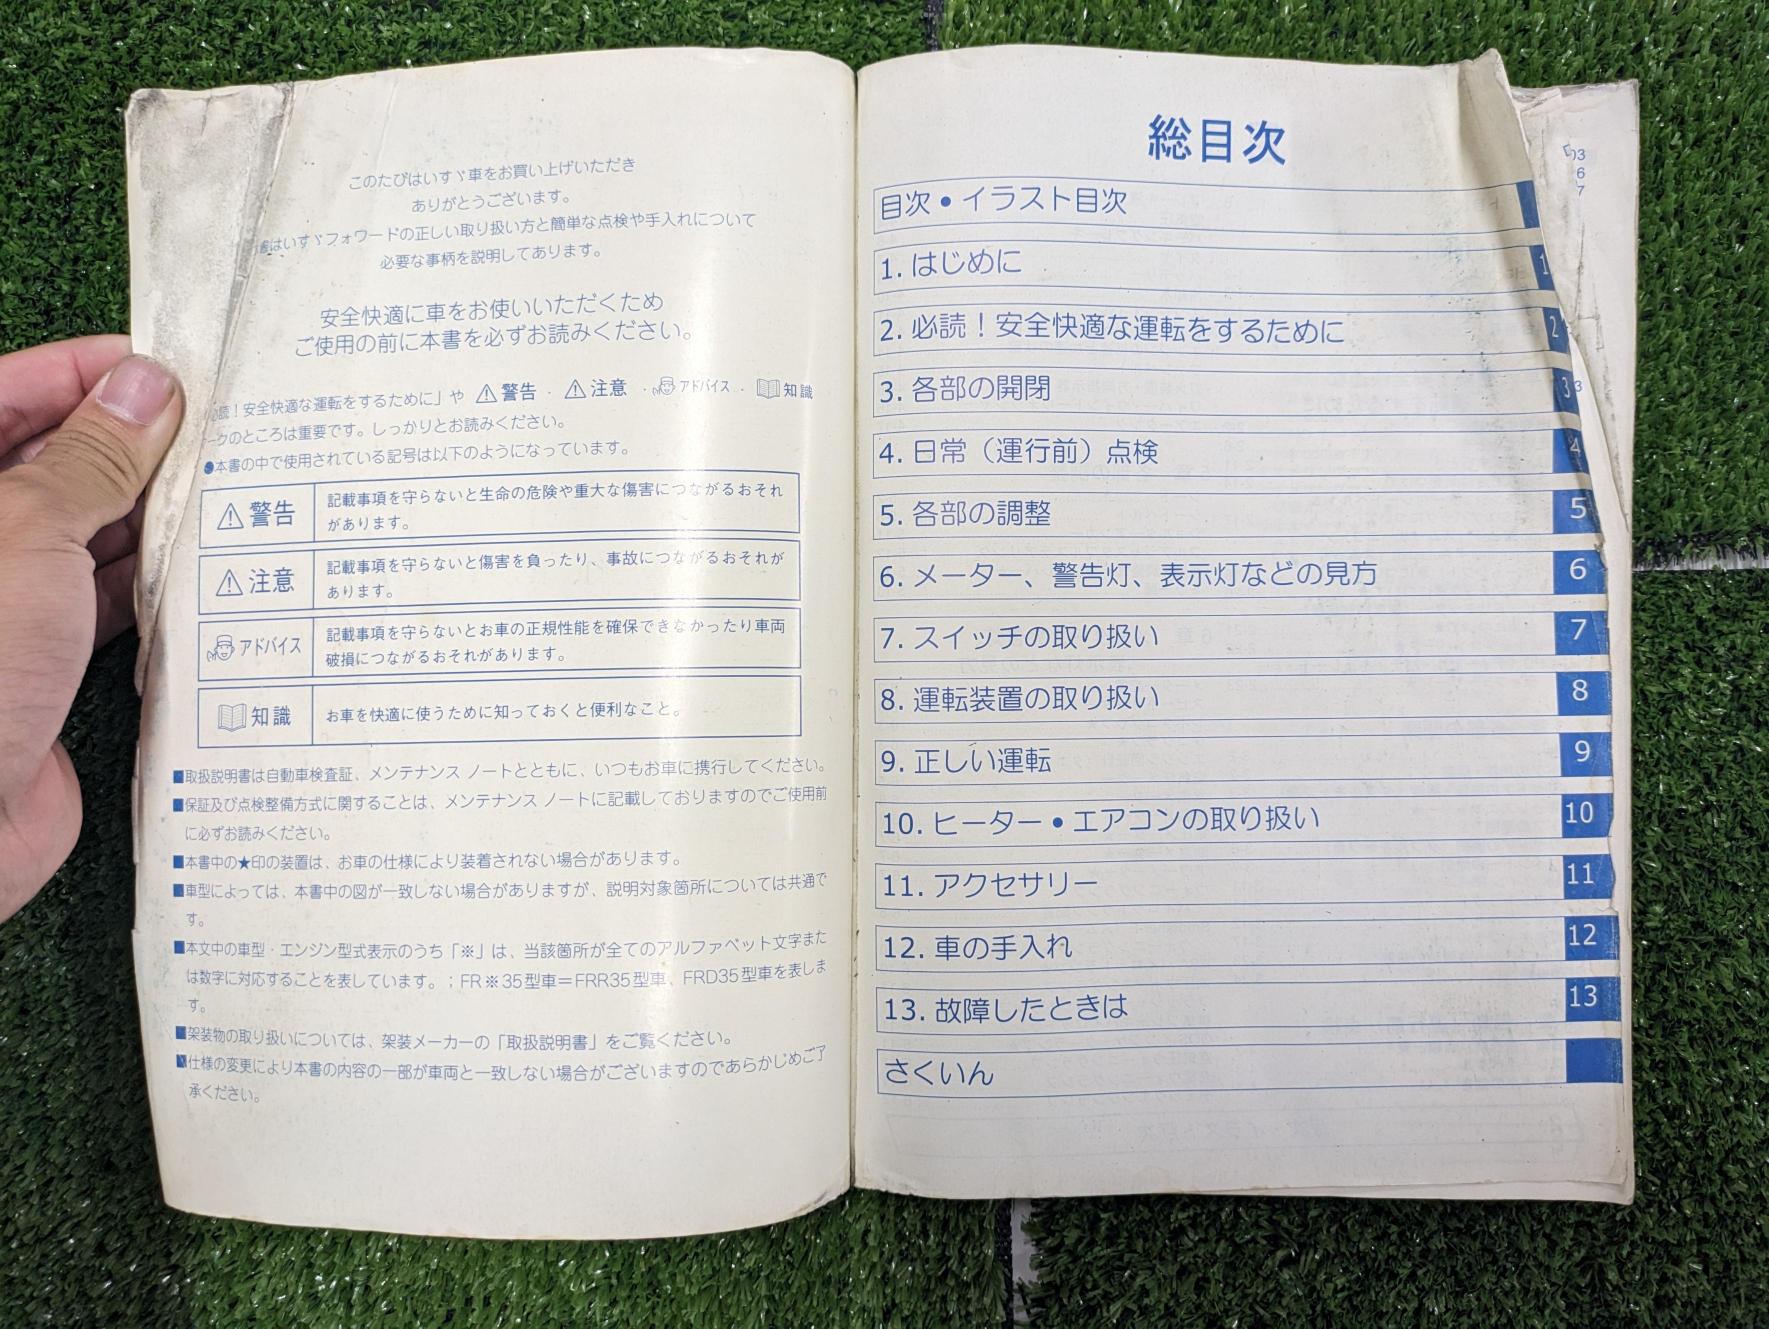 このたびはいすゞ車をお買い上げいただき
ありがとうございます。
はいすゞフォワードの正しい取り扱い方と簡単な点検や手入れについて
必要な事柄を説明してあります。
安全快適に車をお使いいただくため
ご使用の前に本書を必ずお読みください。
読！安全快適な運転をするために」や ⚠警告・⚠注意・アドバイス・知識
ークのところは重要です。しっかりとお読みください。
●本書の中で使用されている記号は以下のようになっています。
⚠警告
記載事項を守らないと生命の危険や重大な傷害につながるおそれ
があります。
⚠注意
記載事項を守らないと傷害を負ったり、事故につながるおそれが
あります。
アドバイス
記載事項を守らないとお車の正規性能を確保できなかったり車両
破損につながるおそれがあります。
知識
お車を快適に使うために知っておくと便利なこと。
■取扱説明書は自動車検査証、メンテナンス ノートとともに、いつもお車に携行してください。
■保証及び点検整備方式に関することは、メンテナンス ノートに記載しておりますのでご使用前
に必ずお読みください。
■本書中の★印の装置は、お車の仕様により装着されない場合があります。
■車型によっては、本書中の図が一致しない場合がありますが、説明対象箇所については共通で
す。
■本文中の車型・エンジン型式表示のうち「※」は、当該箇所が全てのアルファベット文字また
は数字に対応することを表しています。；FR※35型車＝FRR35型車、FRD35型車を表しま
す。
■架装物の取り扱いについては、架装メーカーの「取扱説明書」をご覧ください。
■仕様の変更により本書の内容の一部が車両と一致しない場合がございますのであらかじめご了
承ください。
総目次
目次・イラスト目次
1. はじめに 1
2. 必読！安全快適な運転をするために 2
3. 各部の開閉 3
4. 日常（運行前）点検 4
5. 各部の調整 5
6. メーター、警告灯、表示灯などの見方 6
7. スイッチの取り扱い 7
8. 運転装置の取り扱い 8
9. 正しい運転 9
10. ヒーター・エアコンの取り扱い 10
11. アクセサリー 11
12. 車の手入れ 12
13. 故障したときは 13
さくいん